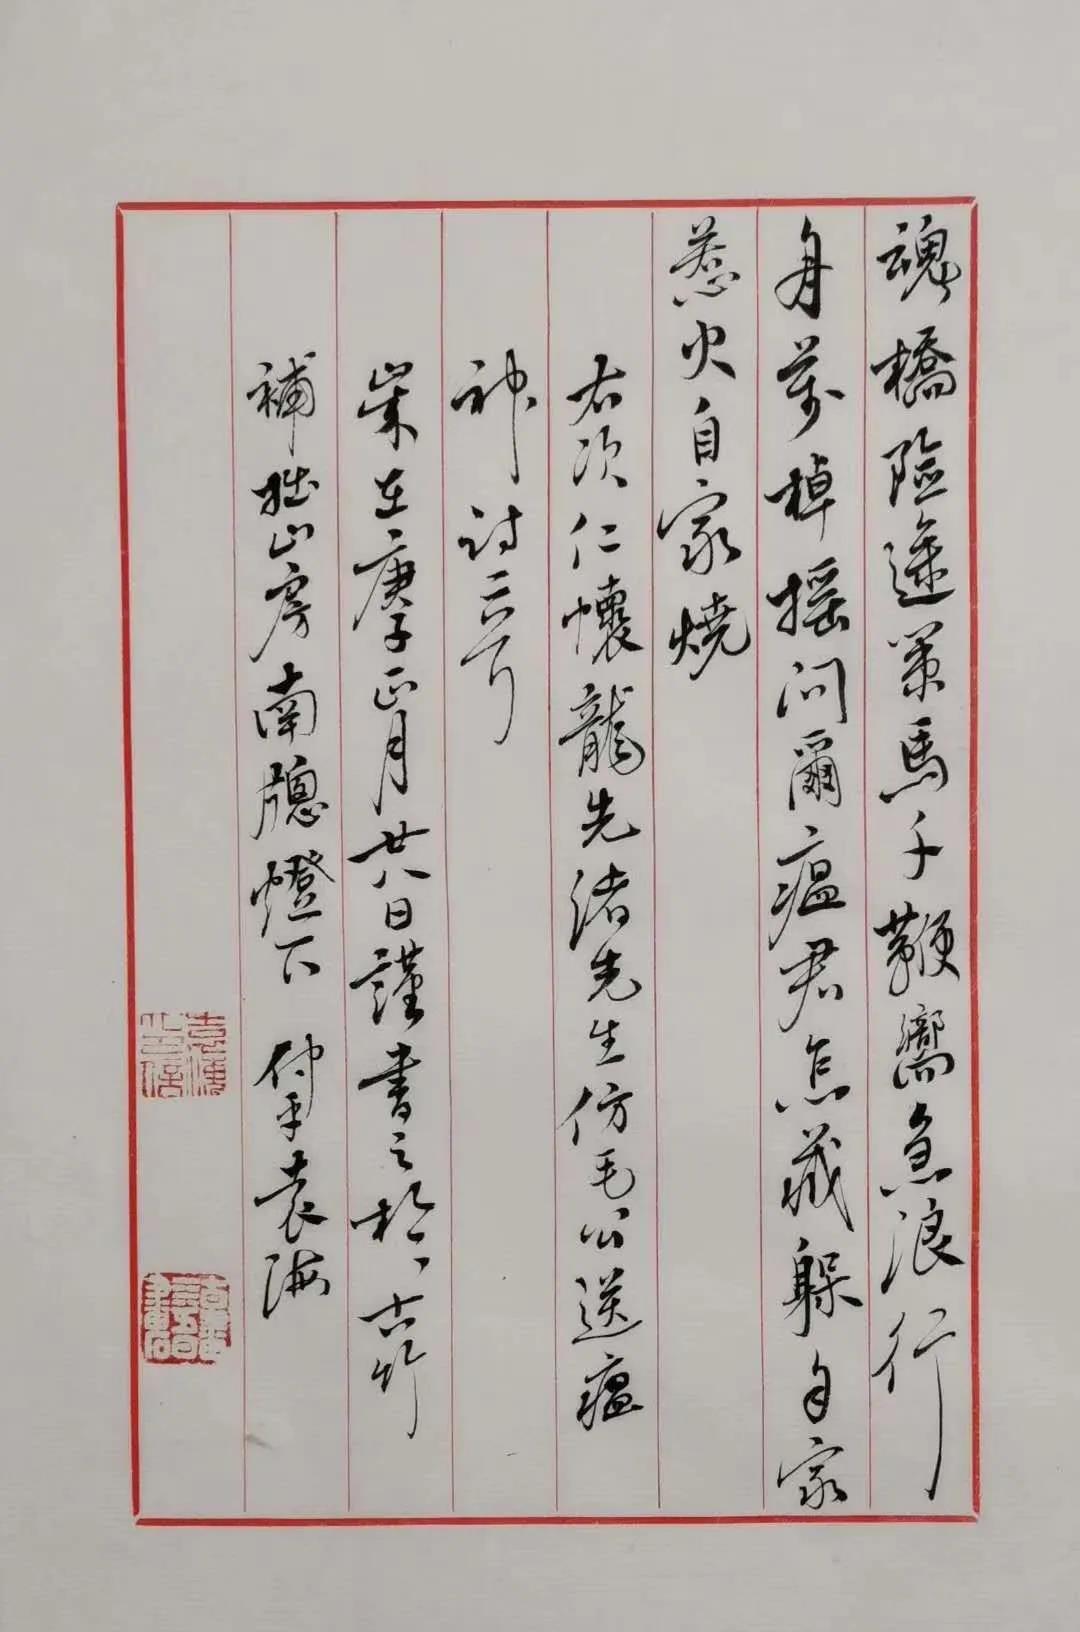 魂橋險逾策馬千鞭響急浪行
舟萬棹摇問爾瘟君怎藏躲自家
惹火自家燒
右次仁懷龍先绪先生仿毛公送瘟
神詩二首
歲在庚子正月廿八日謹書之於古竹
補拙山房南牕燈下 仲平袁海